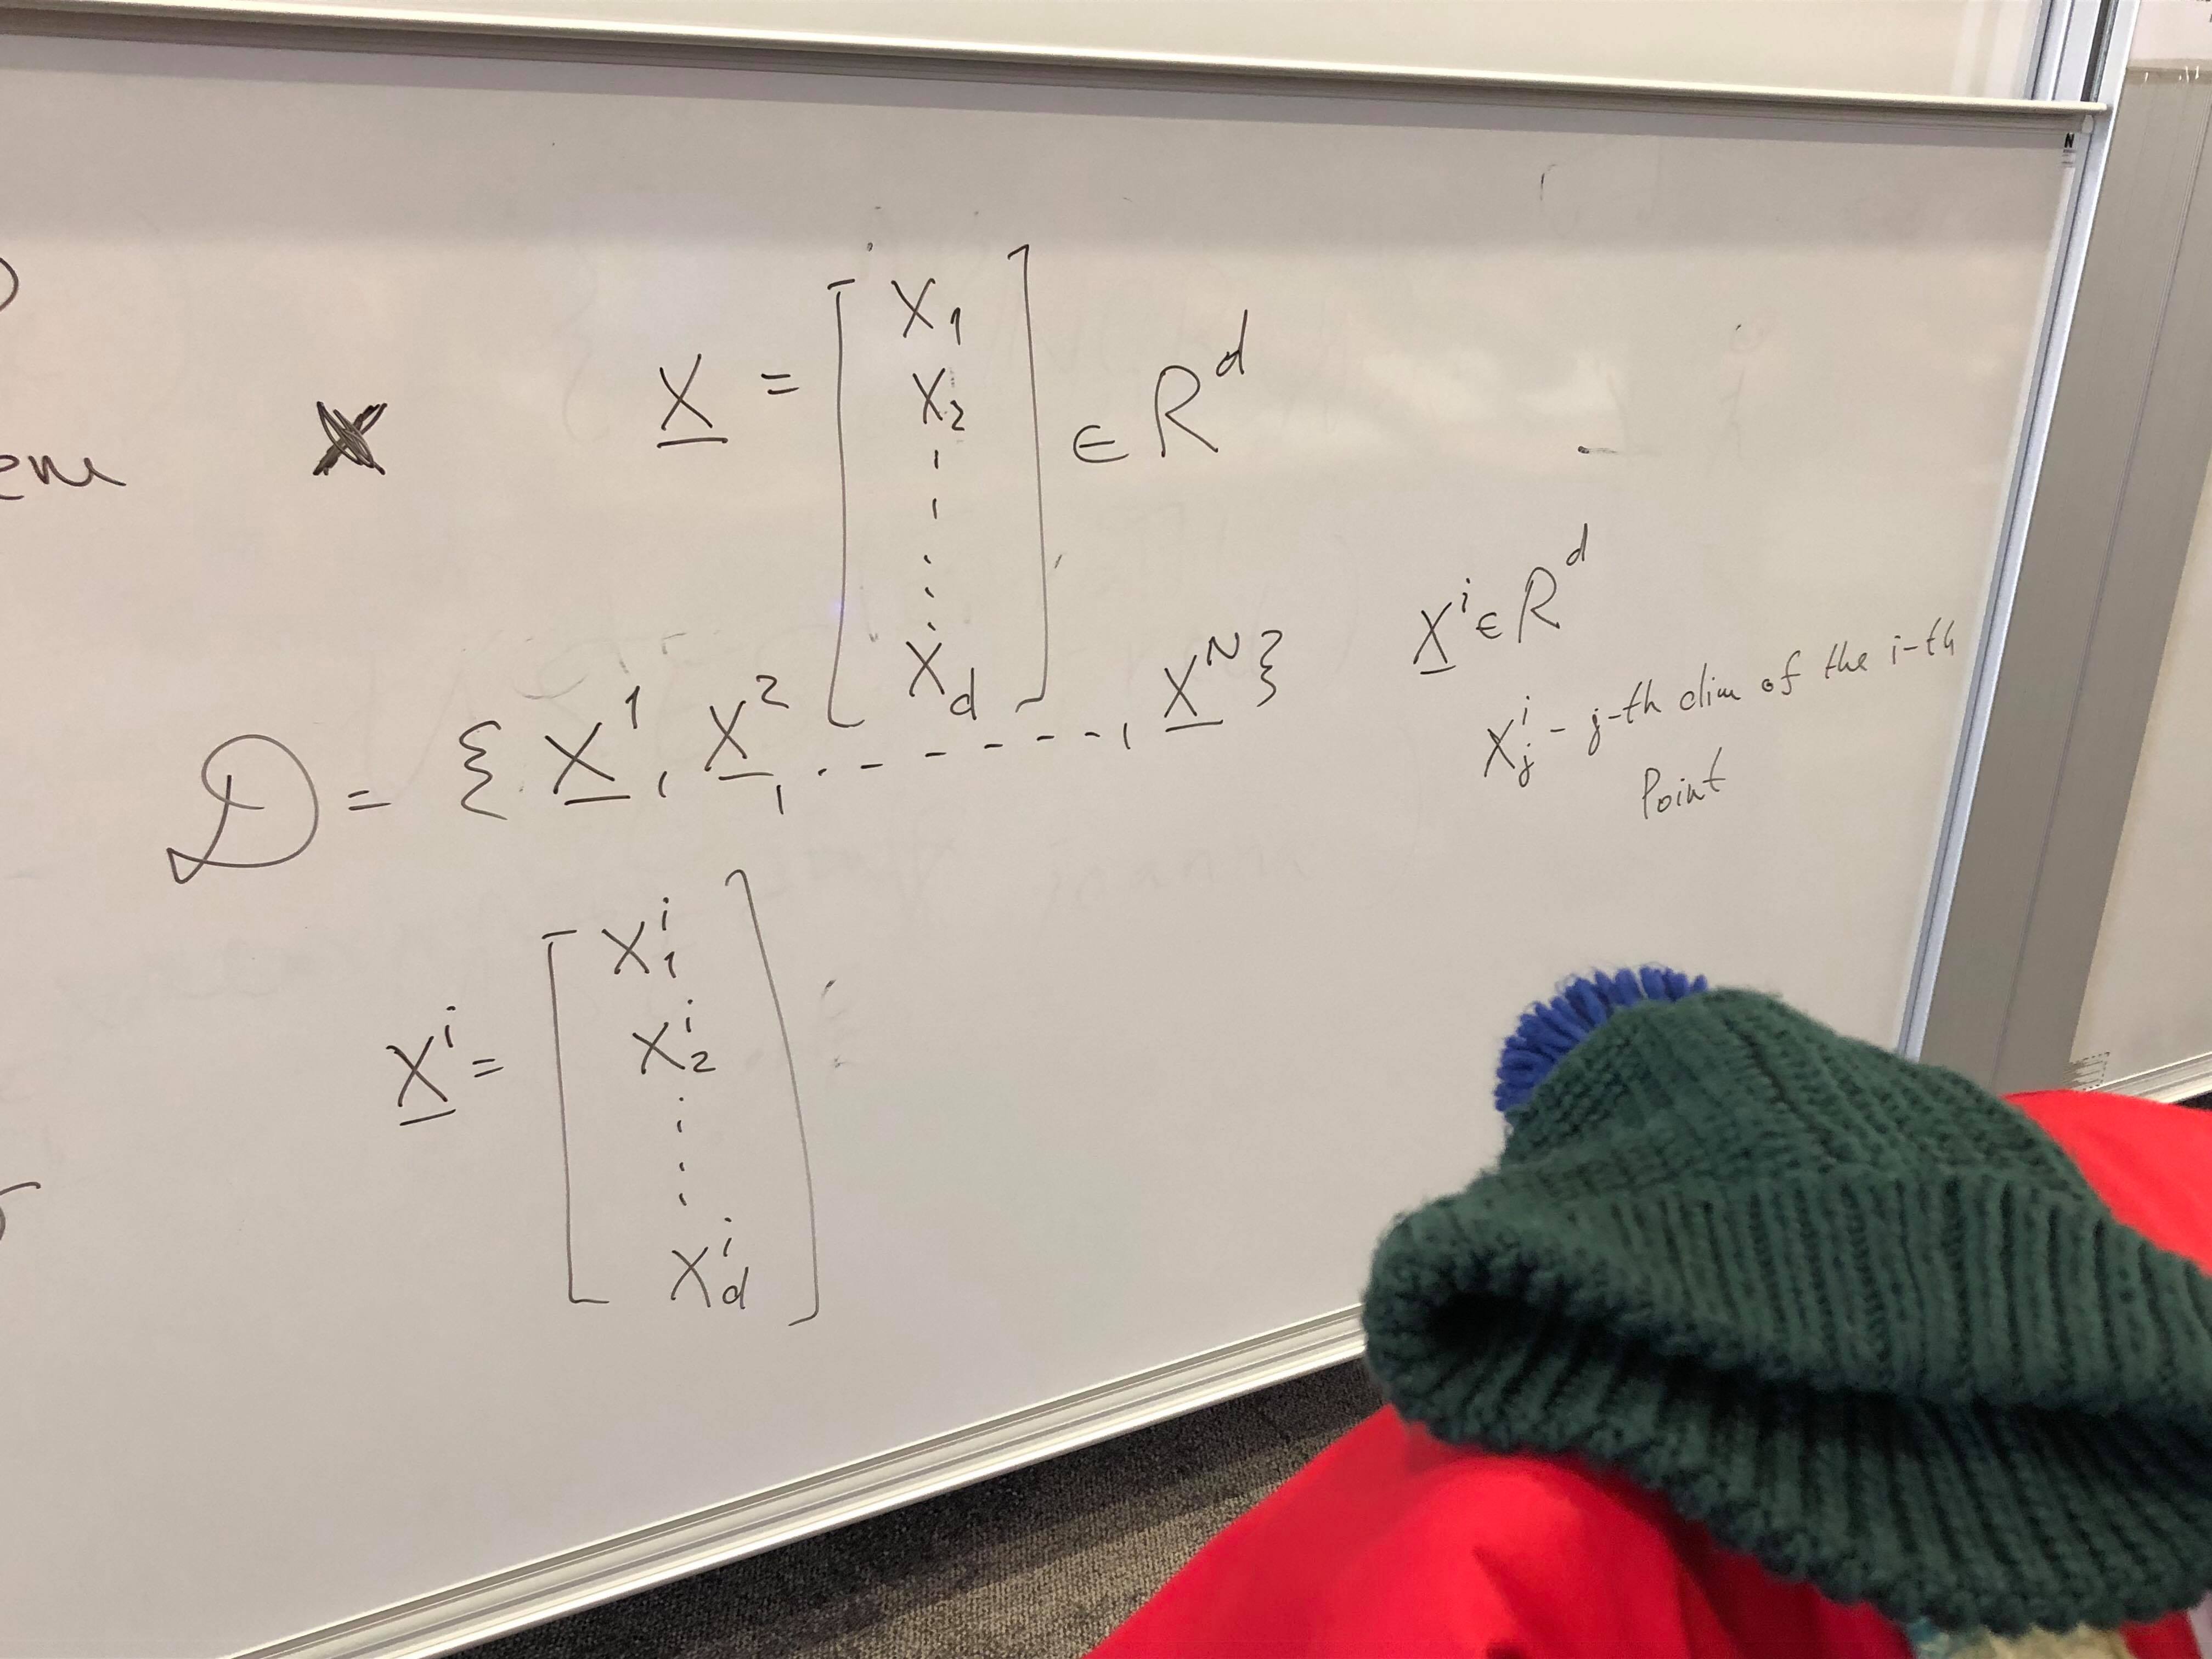 X = [ X₁ X₂ ⋮ X_d ] ∈ R^d
D = { X¹, X², - - - - - -, X^N }
X^i ∈ R^d
X_j^i - j-th dim of the i-th
Point
X^i = [ X₁^i X₂^i ⋮ X_d^i ]